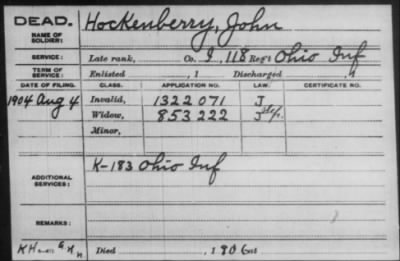 DEAD. Hockenberry, John
NAME OF SOLDIER:
SERVICE: Late rank, Co. I, 118 Reg't Ohio Inf
TERM OF SERVICE: Enlisted , 1 Discharged , 1
DATE OF FILING. CLASS. APPLICATION NO. LAW. CERTIFICATE NO.
1904 Aug 4 Invalid, 1322071 J
Widow, 853222 J
Minor,
ADDITIONAL SERVICES: K-183 Ohio Inf
REMARKS:
Died , 1